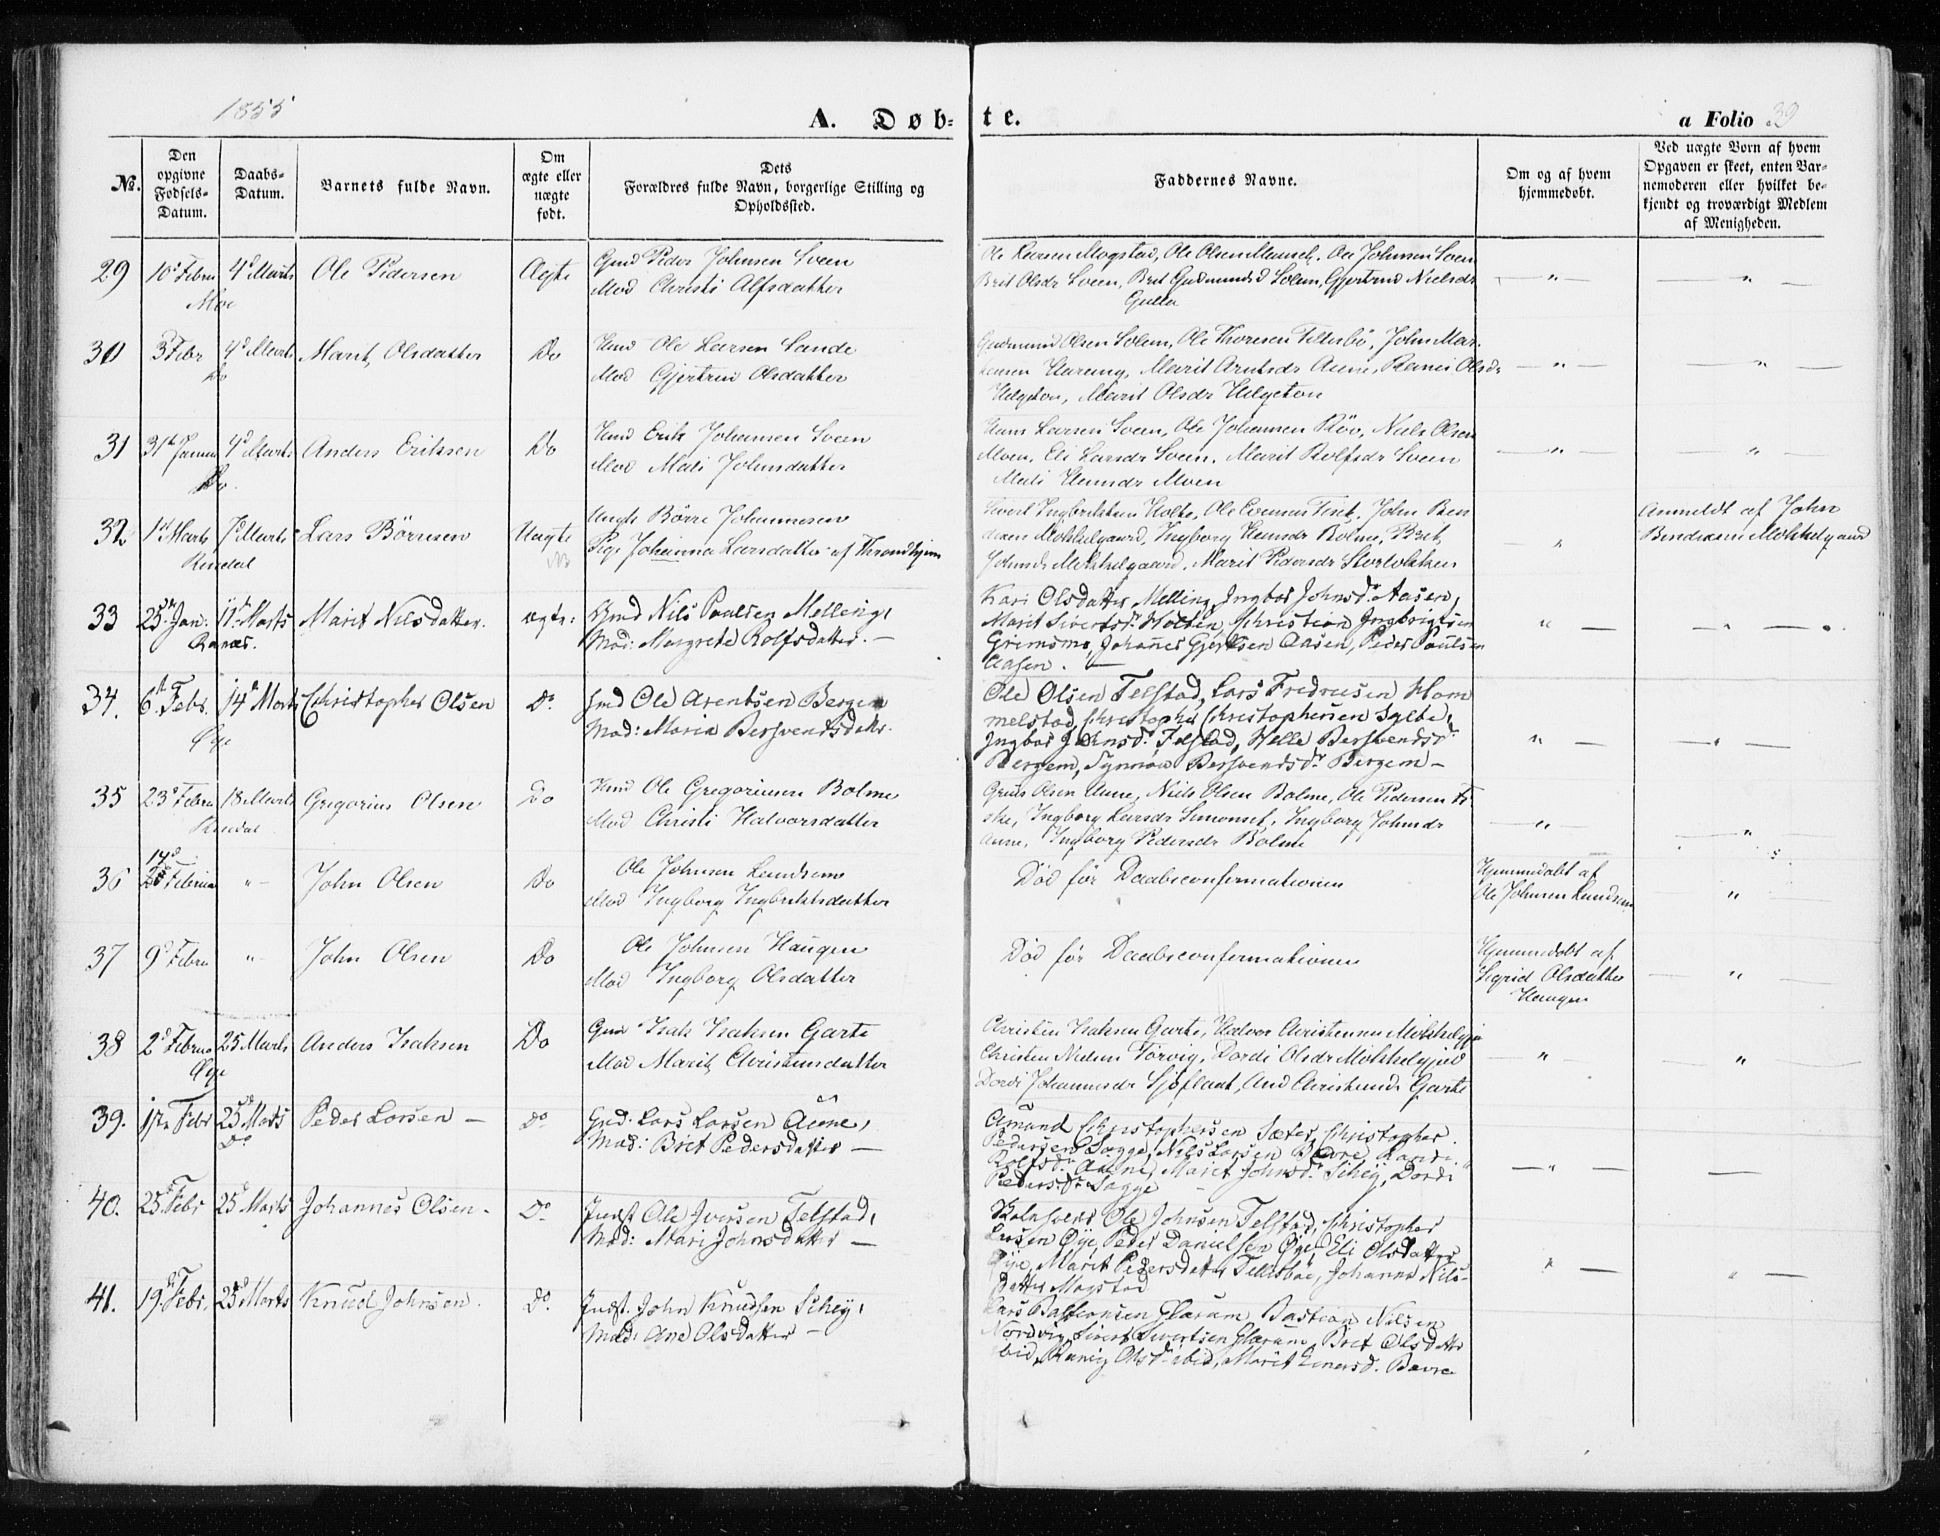 1855
A. Døb-
te.
a Folio 39
No.
Den opgivne Fødsels-Datum.
Daabs-Datum.
Barnets fulde Navn.
Om ægte eller uægte født.
Dets Forældres fulde Navn, borgerlige Stilling og Opholdssted.
Faddernes Navne.
Om og af hvem hjemmedøbt.
Ved uægte Børn af hvem Opgaven er skeet, enten Barnemoderen eller hvilket bekjendt og troværdigt Medlem af Menigheden.
29 10d Febru 4d Marts Ole Pedersen Ægte Gmd Peder Johnsen Sveen
Moe Mod Christi Alfsdatter
Ole Larsen Mogstad, Ole Olsen, Ole Johnsen Sveen
Brit Olsdr Sveen, Brit Gudmundsd Solem, Gjertrud Nielsdr
Gulla
30 3 Febr 4d Marts Marit Olsdatter Do Hmd Ole Larsen Sande
Do Mod Gjertru Olsdatter
Gudmund Olsen Solem, Ole Thoresen Tellesbø, John Mar-
Marit Arntsdr Aune, Ranei Olsdr
Helgeton, Marit Olsdr Helgeton
31 31te Januar 4d Marts Anders Eriksen Do Hmd Erik Johansen Sveen
Do Mod Mali Johnsdatter
Hans Larsen Sveen, Ole Johansen Røv, Niels Olsen
Moen, Eli Larsdr Sveen, Marit Rolfsdr Sveen
Mali Hansdr Moen
32 1st Marts 7d Marts Lars Börresen Uægte Ungk Börre Johannesen
Rindal NB Pige Johanna Larsdatter af Throndhjem
Sivert Ingebrigtsen Holte, Ole Tiset, John Ben-
Mokkelgaard, Ingborg Hansdr Bolme, Brit
Johnsdr Mokkelgaard, Marit Pedersdr Storløkken
Anmeldt af John
Bendixen Mokkelgaard
33 25de Jan: 11te Marts Marit Nilsdatter. ægte: Gmd Nils Paulsen Melling,
Ranæs. Mod: Margrete Rolfsdatter. —
Kari Olsdatter Melling, Ingbor Johnsdr Aasen,
Marit Sivertsdr Holten, Christian Ingbrigtsen
Grimsmo, Johannes Gjertsen Aasen, Peder Paulsen
Aasen. —
34. 6te Febr. 14de Marts Christopher Olsen Do Imd Ole Arentsen Bergem
Øye Mod: Maria Bersvendsdatr.
Ole Olsen Telstad, Lars Fredriksen Hom
melstad, Christopher Christophersen Sylte,
Ingbor Johnsdr Telstad, Helle Bersvendsdr
Bergem, Synnøv Bersvendsdr Bergem —
35 23d Febru 18 Marts Gregorius Olsen Do Hmd Ole Gregoriusen Bolme
Rindal Mod Christi Halvorsdatter
Olsen Aune, Niels Olsen Bolme, Ole Pedersen Fi
ske, Ingborg Larsdr Simonset, Ingborg Johnsdr
Aune, Ingborg Pedersdr Bolme
36 14d Februar " John Olsen Do Ole Johnsen Lundsem
Mod Ingborg Ingbrektsdatter
Död för Daabsconfermationen
Hjemmedøbt af
Ole Johnsen Lundsem
37 9d Febru " John Olsen Do Ole Johnsen Haugen
Mod Ingborg Olsdatter
Död för Daabsconfermationen
Hjemmedøbt af
Sigrid Olsdatter
Haugen
38 2d Februar 25 Marts Anders Isaksen Do Gmd Isak Isaksen Garte
Øye Mod Marit Christensdatter
Christen Isaksen Garte, Halvor Christensen Mokkelgje
Christen Nielsen Törvig, Dordi Olsdr Mokkelgjerd
Dordi Johannesdr Sjøflaat, Ane Christensdr Garte
39. 17de Febr 25de Marts Peder Larsen — Do Gmd: Lars Larsen Aune,
Do Mod: Brit Pedersdatter —
Amund Christophersen Sæter, Christopher
Pedersen Sogge, Nils Larsen Bævre, Randi
Rolfsdr Aune, Marit Johnsdr Schey, Dordi
Pedersdr Sogge
40. 25de Febr 25de Marts Johannes Olsen - Do Indst Ole Iversen Telstad,
Mod: Mari Johnsdatter —
Ole Johnsen Telstad, Christopher
Larsen Øye, Peder Danielsen Øye, Eli Olsdatter
Øye, Marit Pedersdatter Tellesbøe, Johanna Nils-
datter Mogstad
41. 19de Febr. 25de Marts Knud Johnsen. Do Indst. John Knudsen Schey,
Mod: Ane Olsdatter —
Lars Bastiansen Glærum, Bastian Nilsen
Nordvig, Sivert Sivertsen Glærum, Brit Olsdatter
ibid, Ranig Olsdr ibid, Marit Einersd. Bævre